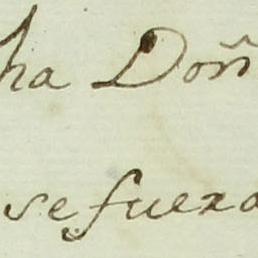 ha Doñ
se fuera